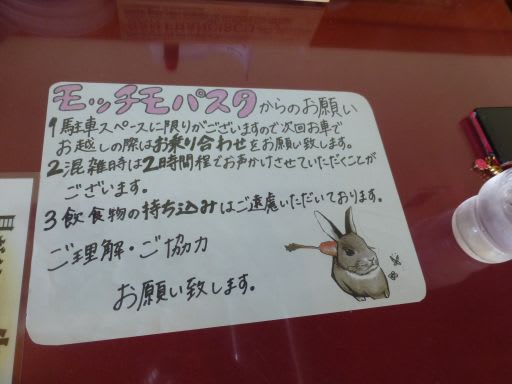 モッチモパスタからのお願い
1 駐車スペースに限りがございますので次回お車で
お越しの際はお乗り合わせをお願い致します。
2 混雑時は2時間程でお声かけさせていただくことが
ございます。
3 飲食物の持ち込みはご遠慮いただいております。
ご理解・ご協力
お願い致します。